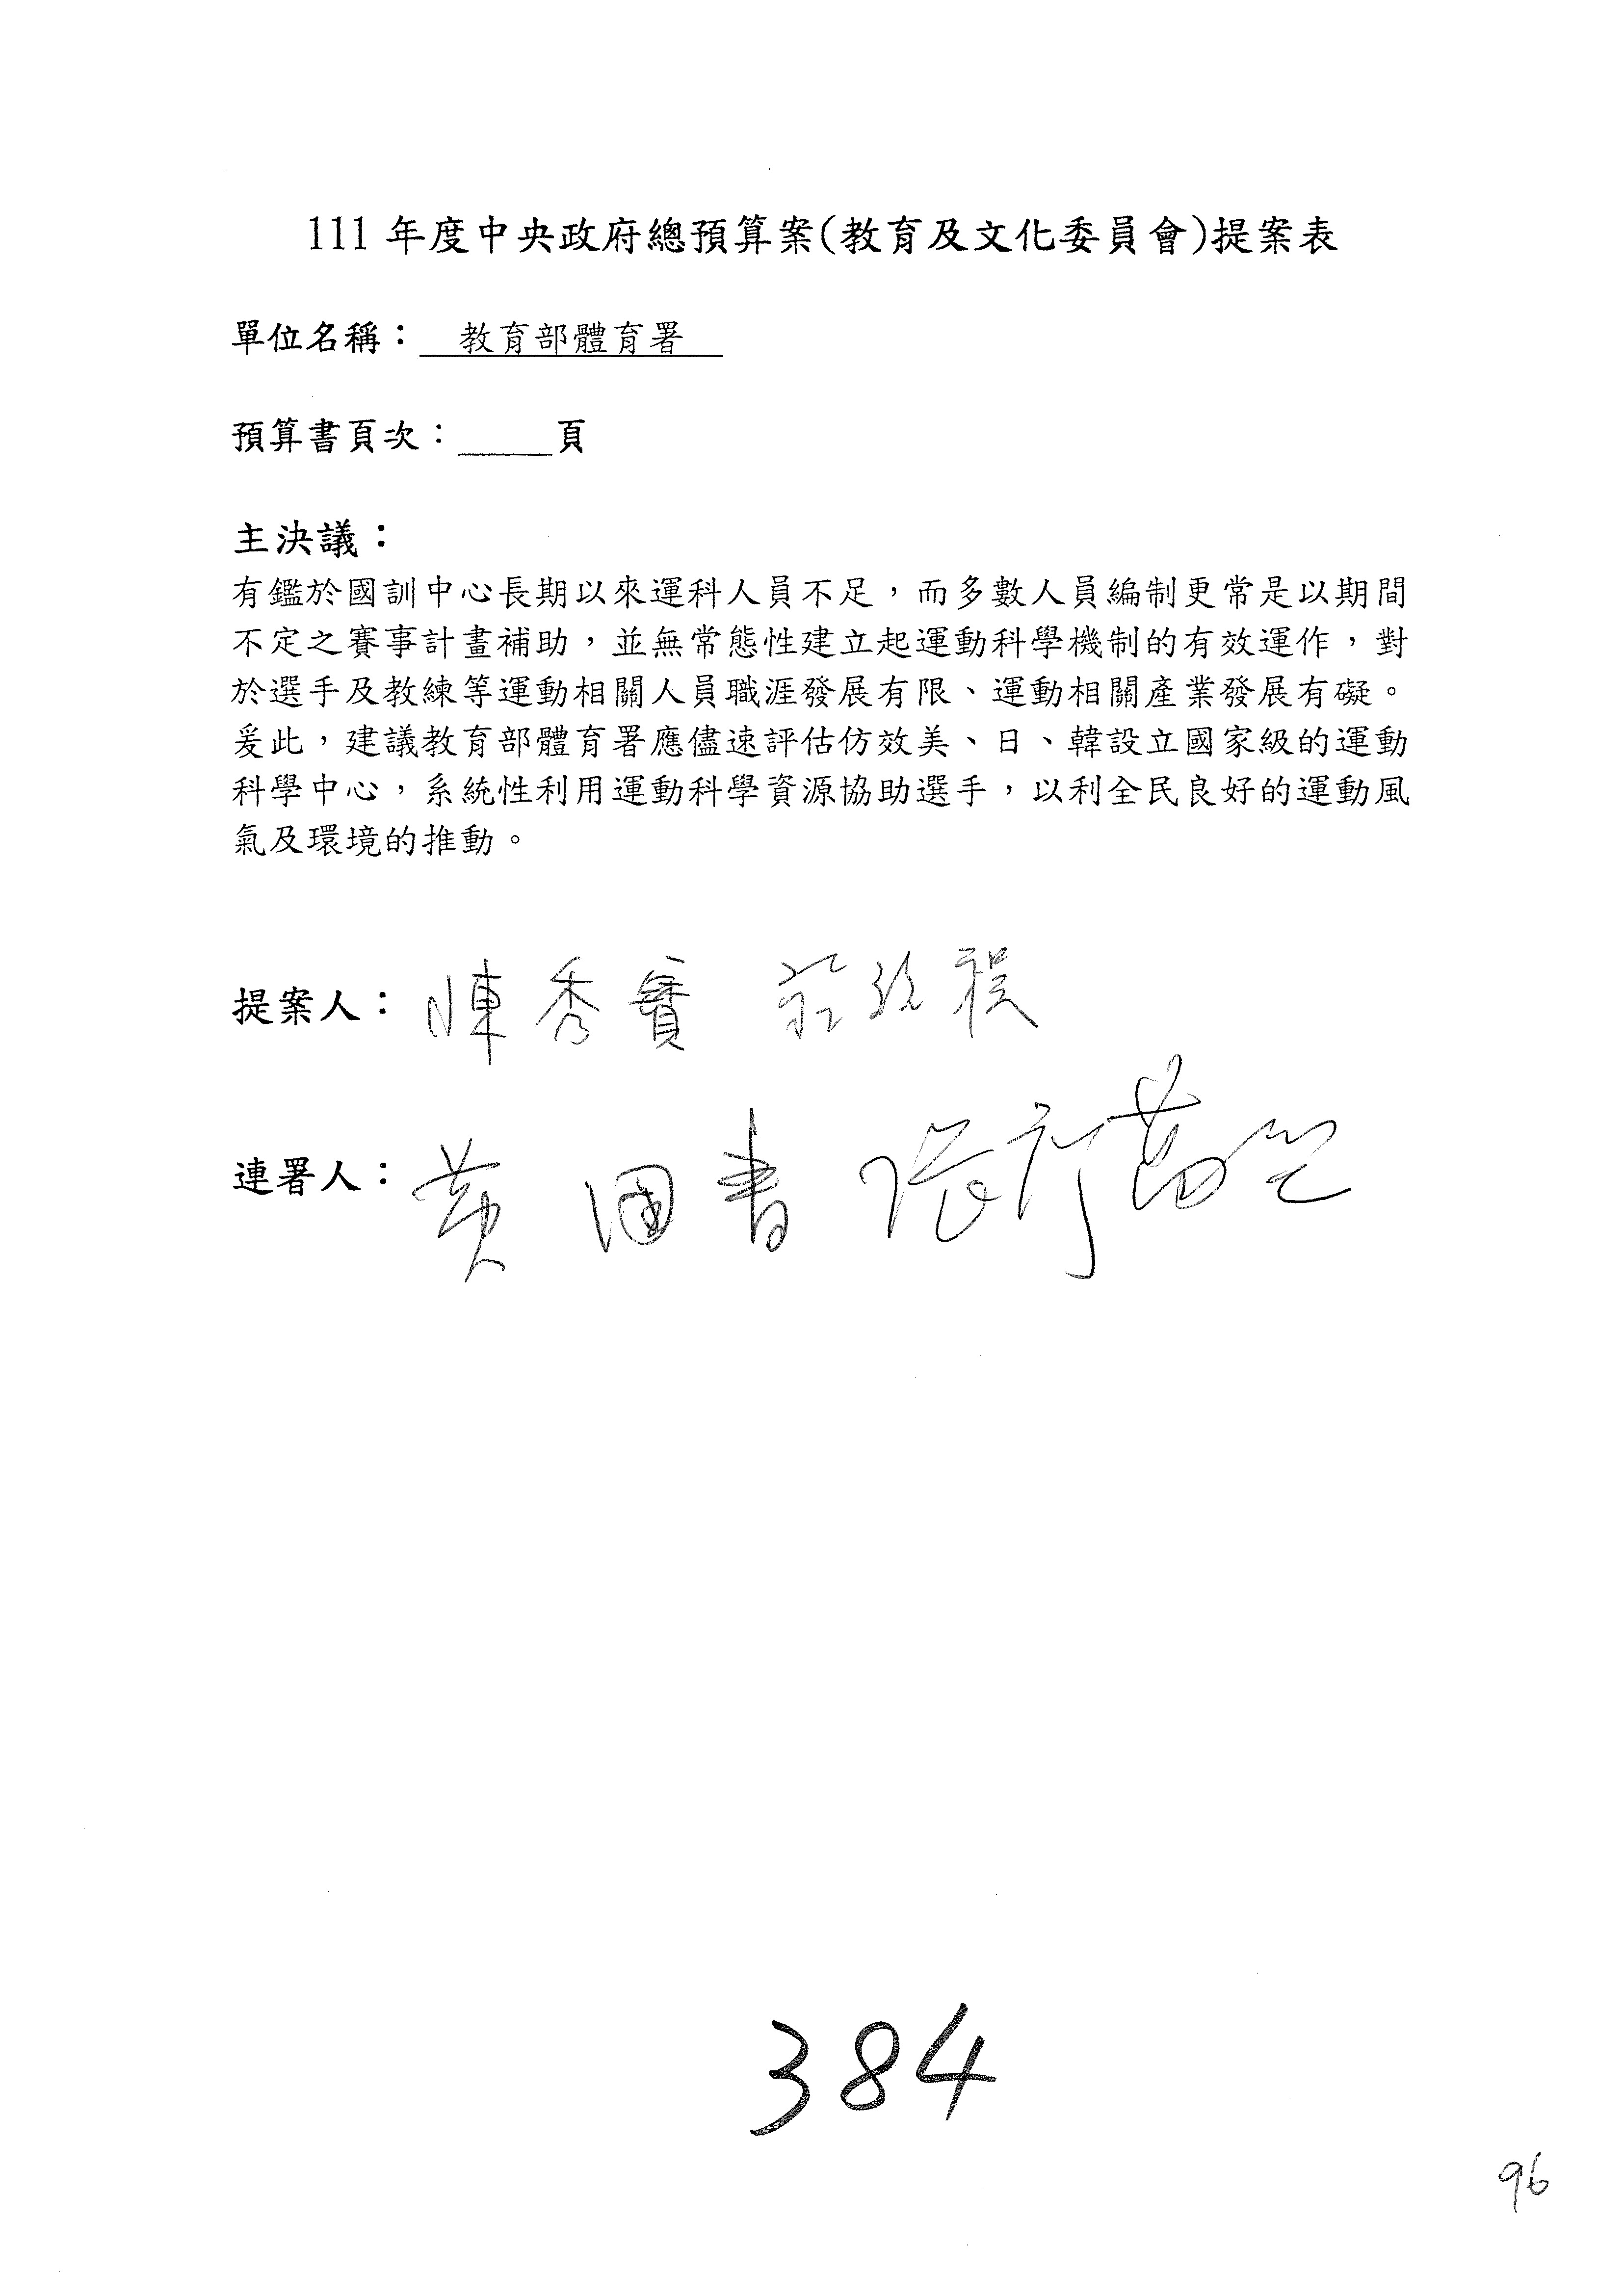 111 年度中央政府總預算案(教育及文化委員會)提案表
單位名稱：教育部體育署
預算書頁次：____頁
主決議：
有鑑於國訓中心長期以來運科人員不足，而多數人員編制更常是以期間
不定之賽事計畫補助，並無常態性建立起運動科學機制的有效運作，對
於選手及教練等運動相關人員職涯發展有限、運動相關產業發展有礙。
爰此，建議教育部體育署應儘速評估仿效美、日、韓設立國家級的運動
科學中心，系統性利用運動科學資源協助選手，以利全民良好的運動風
氣及環境的推動。
提案人：陳秀寳
連署人：黃國書
384
96